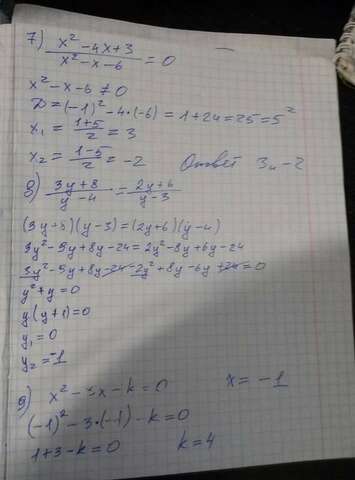 7) x² - 4x + 3 / x² - x - 6 = 0
x² - x - 6 ≠ 0
D = (-1)² - 4·(-6) = 1 + 24 = 25 = 5²
x₁ = 1+5 / 2 = 3
x₂ = 1-5 / 2 = -2 Ответ 3 и -2
8) 3y + 8 / y - 4 = 2y + 6 / y - 3
(3y + 8)(y - 3) = (2y + 6)(y - 4)
3y² - 9y + 8y - 24 = 2y² - 8y + 6y - 24
3y² - 9y + 8y - 24 - 2y² + 8y - 6y + 24 = 0
y² + y = 0
y(y + 1) = 0
y₁ = 0
y₂ = -1
9) x² - 3x - k = 0 x = -1
(-1)² - 3·(-1) - k = 0
1 + 3 - k = 0 k = 4